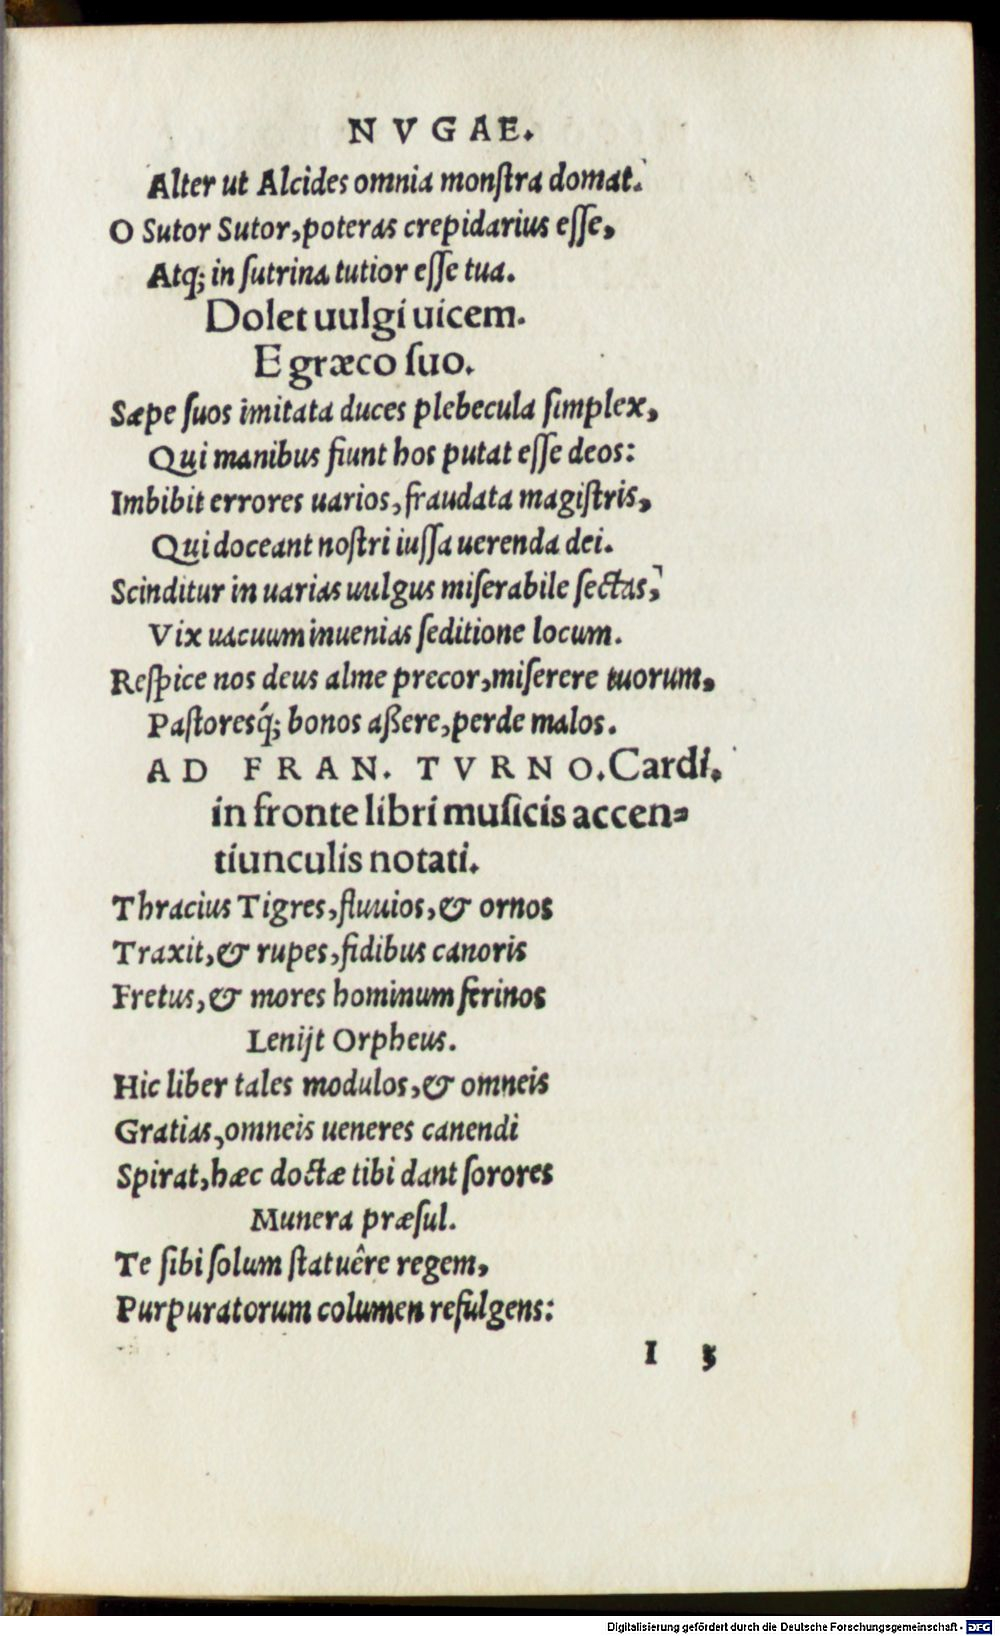 NVGAE.
Alter ut Alcides omnia monſtra domat.
O Sutor Sutor, poteras crepidarius eſſe,
Atq; in ſutrina tutior eſſe tua.
Dolet uulgi uicem.
E græco ſuo.
Sæpe ſuos imitata duces plebecula ſimplex,
Qui manibus fiunt hos putat eſſe deos:
Imbibit errores uarios, fraudata magiſtris,
Qui doceant noſtri iuſſa uerenda dei.
Scinditur in uarias uulgus miſerabile ſectas,
Vix uacuum inuenias ſeditione locum.
Reſpice nos deus alme precor, miſerere tuorum,
Paſtoresq́; bonos aßere, perde malos.
AD FRAN. TVRNO. Cardi.
in fronte libri muſicis accen⸗
tiunculis notati.
Thracius Tigres, fluuios, & ornos
Traxit, & rupes, fidibus canoris
Fretus, & mores hominum ferinos
Lenijt Orpheus.
Hic liber tales modulos, & omneis
Gratias, omneis ueneres canendi
Spirat, hæc doctæ tibi dant ſorores
Munera præſul.
Te ſibi ſolum ſtatuêre regem,
Purpuratorum columen refulgens:
I 3
Digitalisierung gefördert durch die Deutsche Forschungsgemeinschaft - DFG